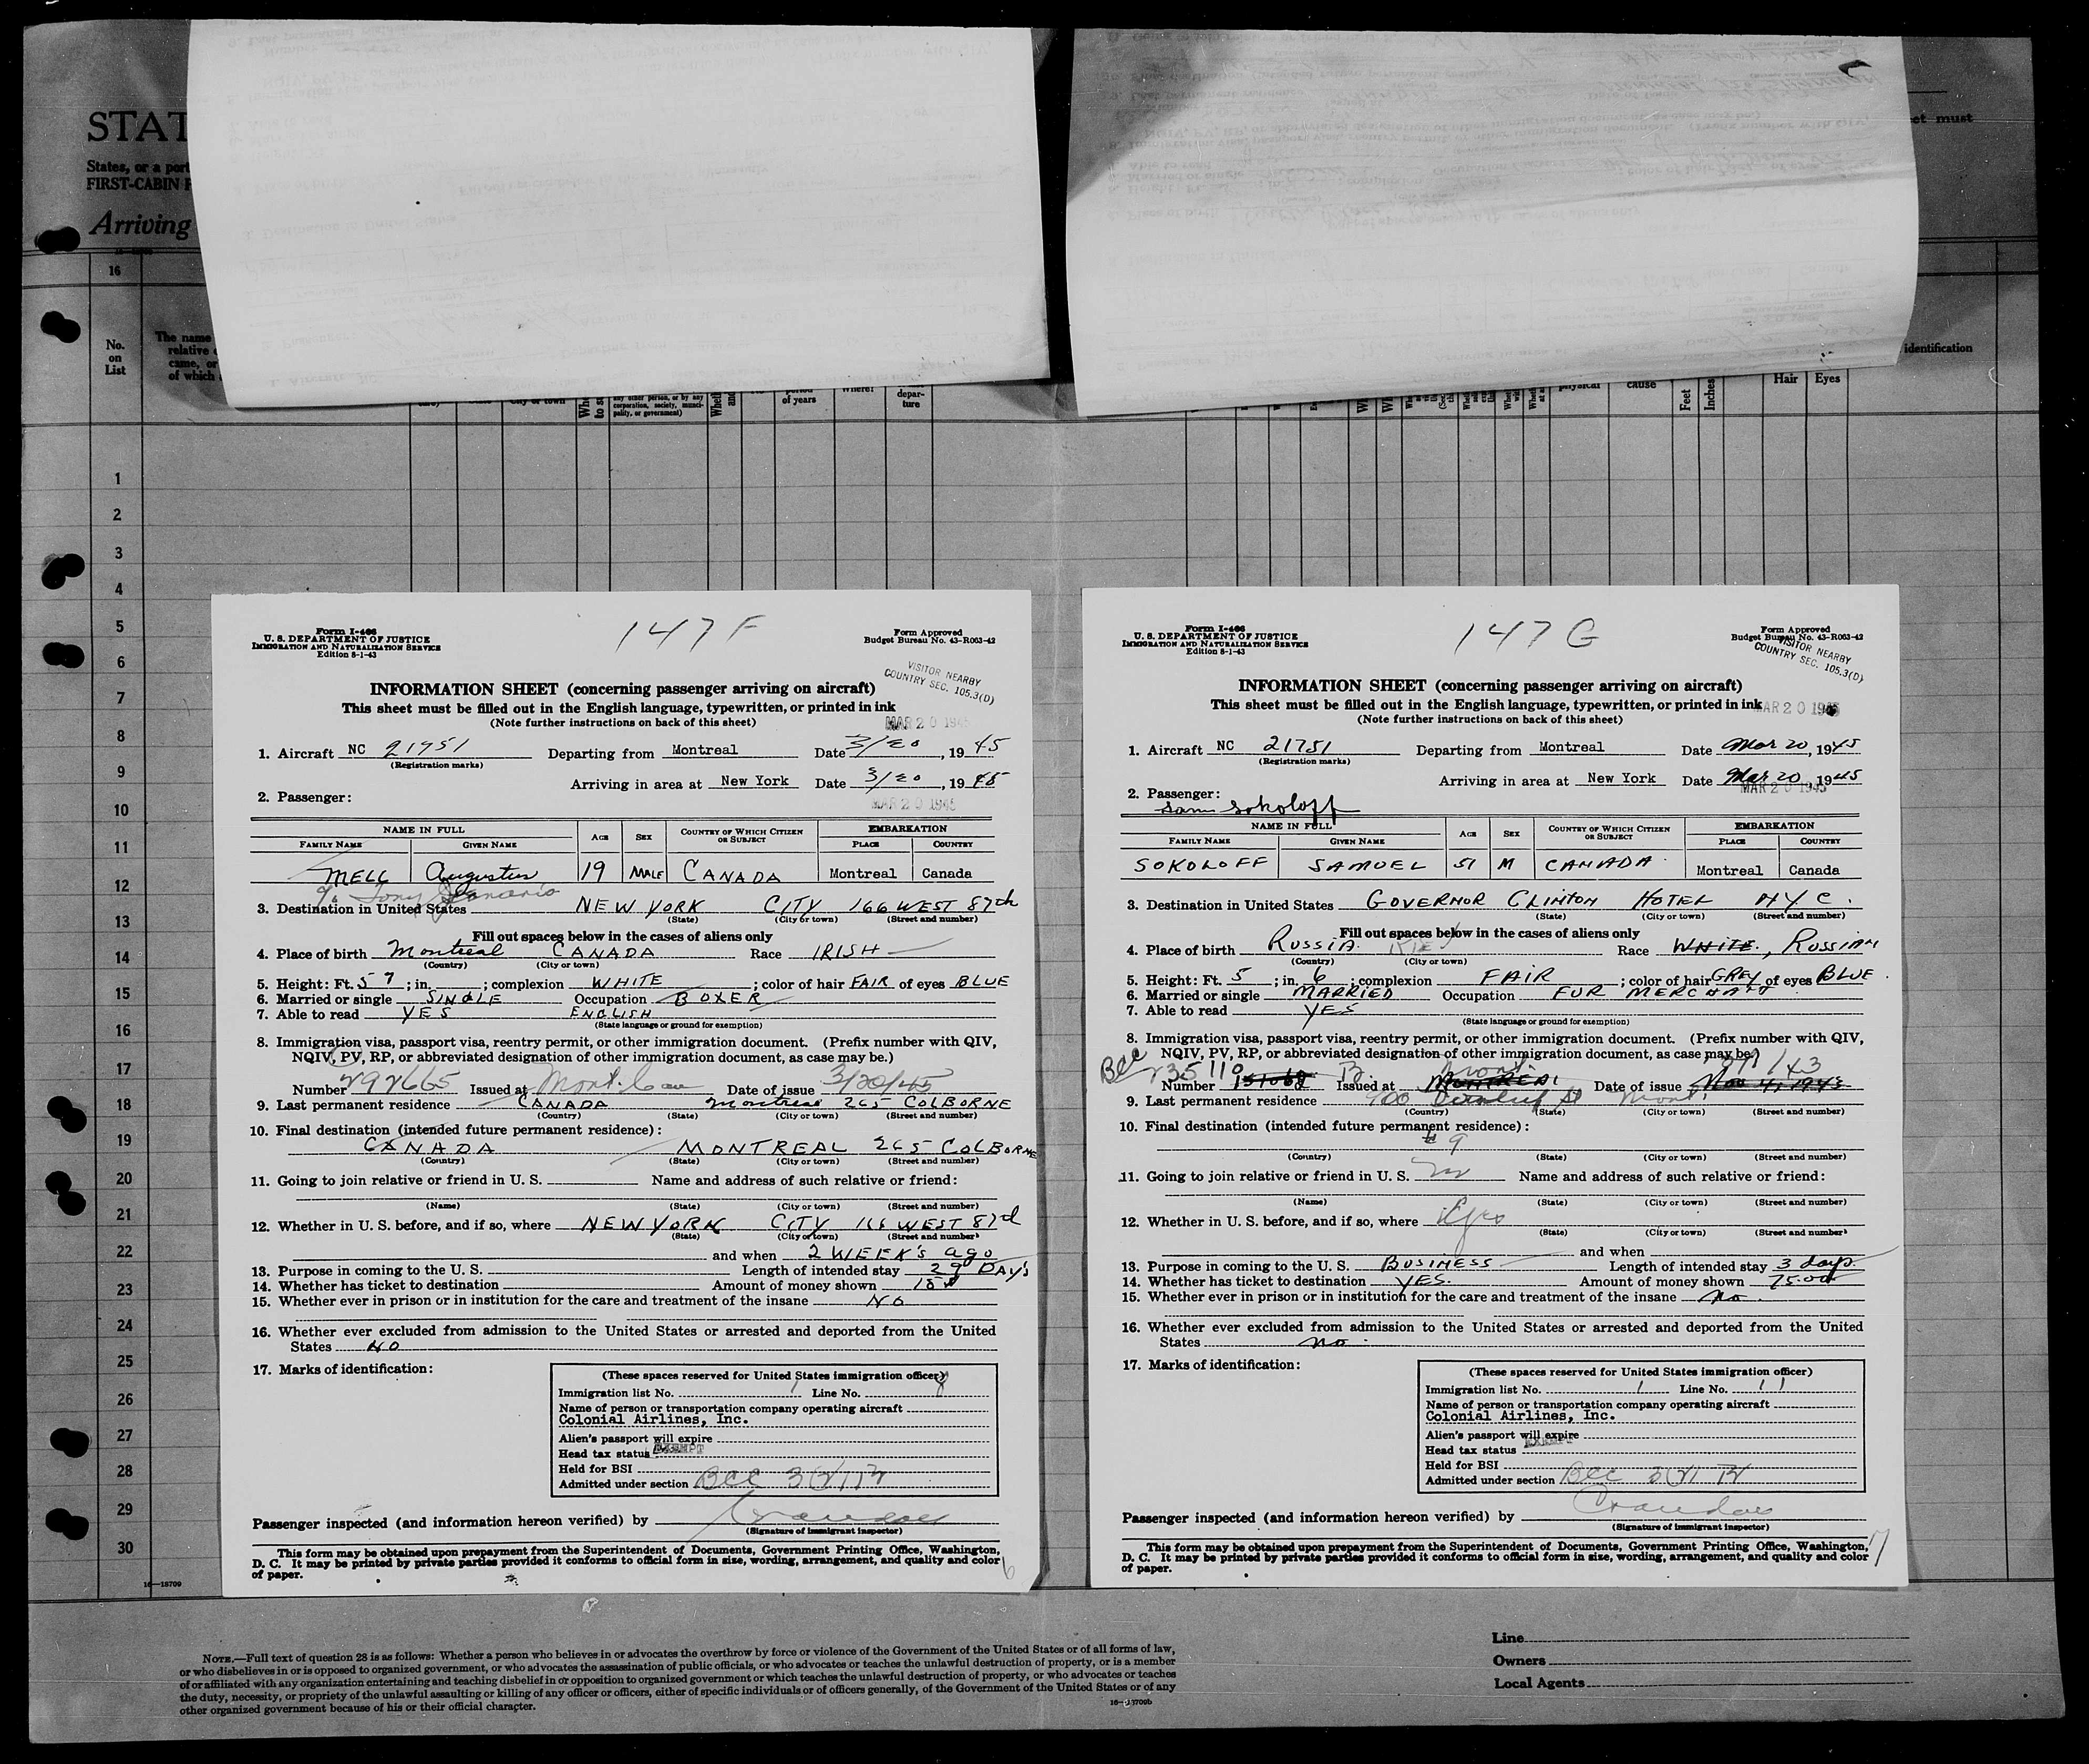 STAT
States, or a port
FIRST-CABIN P
Arriving
et must
16
No.
on
List
The name
relative
came, or
of which
any other person, or by any
corporation, society, munici-
pality, or government)
period
of years
Where?
depar-
ture
physical
cause
Feet
Inches
identification
Hair
Eyes
1
2
3
4
5
6
7
8
9
10
11
12
13
14
15
16
17
18
19
20
21
22
23
24
25
26
27
28
29
30
16—18709
147 F
Form I-466
U. S. DEPARTMENT OF JUSTICE
IMMIGRATION AND NATURALIZATION SERVICE
Edition 8-1-43
Form Approved
Budget Bureau No. 43-R063-42
VISITOR NEARBY
COUNTRY SEC. 105.3(D)
INFORMATION SHEET (concerning passenger arriving on aircraft)
This sheet must be filled out in the English language, typewritten, or printed in ink
(Note further instructions on back of this sheet)
MAR 20 1945
1. Aircraft NC 21951 Departing from Montreal Date 3/20, 1945
(Registration marks)
Arriving in area at New York Date 3/20, 1945
MAR 20 1945
2. Passenger:
NAME IN FULL AGE SEX COUNTRY OF WHICH CITIZEN OR SUBJECT EMBARKATION
FAMILY NAME GIVEN NAME PLACE COUNTRY
MELL Augustus 19 MALE CANADA Montreal Canada
% Tony
3. Destination in United States NEW YORK CITY 166 WEST 87th
(State) (City or town) (Street and number)
Fill out spaces below in the cases of aliens only
4. Place of birth Montreal CANADA Race IRISH
(Country) (City or town)
5. Height: Ft. 5 7; in. ; complexion WHITE; color of hair FAIR of eyes BLUE
6. Married or single SINGLE Occupation BOXER
7. Able to read YES ENGLISH
(State language or ground for exemption)
8. Immigration visa, passport visa, reentry permit, or other immigration document. (Prefix number with QIV,
NQIV, PV, RP, or abbreviated designation of other immigration document, as case may be.)
Number 292665 Issued at Mont. Can Date of issue 3/20/45
9. Last permanent residence CANADA Montreal 265 COLBORNE
(Country) (State) (City or town) (Street and number)
10. Final destination (intended future permanent residence):
CANADA MONTREAL 265 COLBORNE
(Country) (State) (City or town) (Street and number)
11. Going to join relative or friend in U. S. Name and address of such relative or friend:
(Name) (State) (City or town) (Street and number)
12. Whether in U. S. before, and if so, where NEW YORK CITY 166 WEST 87d
(State) (City or town) (Street and number)
and when 2 WEEK'S ago
13. Purpose in coming to the U. S. Length of intended stay 29 DAY'S
14. Whether has ticket to destination Amount of money shown
15. Whether ever in prison or in institution for the care and treatment of the insane NO
16. Whether ever excluded from admission to the United States or arrested and deported from the United
States NO
17. Marks of identification:
(These spaces reserved for United States immigration officer)
Immigration list No. 1 Line No. 8
Name of person or transportation company operating aircraft
Colonial Airlines, Inc.
Alien's passport will expire
Head tax status EXEMPT
Held for BSI
Admitted under section BCC 3(2)
Passenger inspected (and information hereon verified) by
(Signature of immigrant inspector)
This form may be obtained upon prepayment from the Superintendent of Documents, Government Printing Office, Washington,
D. C. It may be printed by private parties provided it conforms to official form in size, wording, arrangement, and quality and color
of paper.
6
147 G
Form I-466
U. S. DEPARTMENT OF JUSTICE
IMMIGRATION AND NATURALIZATION SERVICE
Edition 8-1-43
Form Approved
Budget Bureau No. 43-R063-42
VISITOR NEARBY
COUNTRY SEC. 105.3(D)
INFORMATION SHEET (concerning passenger arriving on aircraft)
This sheet must be filled out in the English language, typewritten, or printed in ink
(Note further instructions on back of this sheet)
MAR 20 1945
1. Aircraft NC 21751 Departing from Montreal Date Mar 20, 1945
(Registration marks)
Arriving in area at New York Date Mar 20, 1945
MAR 20 1945
2. Passenger:
Sam Sokoloff
NAME IN FULL AGE SEX COUNTRY OF WHICH CITIZEN OR SUBJECT EMBARKATION
FAMILY NAME GIVEN NAME PLACE COUNTRY
SOKOLOFF SAMUEL 51 M CANADA Montreal Canada
3. Destination in United States GOVERNOR CLINTON HOTEL NYC.
(State) (City or town) (Street and number)
Fill out spaces below in the cases of aliens only
4. Place of birth RUSSIA. Race WHITE, RUSSIAN
(Country) (City or town)
5. Height: Ft. 5; in. 6; complexion FAIR; color of hair GREY of eyes BLUE.
6. Married or single MARRIED Occupation FUR MERCHANT
7. Able to read YES
(State language or ground for exemption)
8. Immigration visa, passport visa, reentry permit, or other immigration document. (Prefix number with QIV,
NQIV, PV, RP, or abbreviated designation of other immigration document, as case may be.)
BCC 235110 Mont
Number Issued at MONTREAL Date of issue Nov 4, 1943
9. Last permanent residence 900 St Mont.
(Country) (State) (City or town) (Street and number)
10. Final destination (intended future permanent residence):
# 9
(Country) (State) (City or town) (Street and number)
11. Going to join relative or friend in U. S. no Name and address of such relative or friend:
(Name) (State) (City or town) (Street and number)
12. Whether in U. S. before, and if so, where yes
(State) (City or town) (Street and number)
and when
13. Purpose in coming to the U. S. BUSINESS Length of intended stay 3 days.
14. Whether has ticket to destination YES. Amount of money shown 75.00
15. Whether ever in prison or in institution for the care and treatment of the insane no.
16. Whether ever excluded from admission to the United States or arrested and deported from the United
States no.
17. Marks of identification:
(These spaces reserved for United States immigration officer)
Immigration list No. 1 Line No. 11
Name of person or transportation company operating aircraft
Colonial Airlines, Inc.
Alien's passport will expire
Head tax status EXEMPT
Held for BSI
Admitted under section BCC 3(2)
Passenger inspected (and information hereon verified) by
(Signature of immigrant inspector)
This form may be obtained upon prepayment from the Superintendent of Documents, Government Printing Office, Washington,
D. C. It may be printed by private parties provided it conforms to official form in size, wording, arrangement, and quality and color
of paper.
7
NOTE.—Full text of question 28 is as follows: Whether a person who believes in or advocates the overthrow by force or violence of the Government of the United States or of all forms of law,
or who disbelieves in or is opposed to organized government, or who advocates the assassination of public officials, or who advocates or teaches the unlawful destruction of property, or is a member
of or affiliated with any organization entertaining and teaching disbelief in or opposition to organized government or which teaches the unlawful destruction of property, or who advocates or teaches
the duty, necessity, or propriety of the unlawful assaulting or killing of any officer or officers, either of specific individuals or of officers generally, of the Government of the United States or of any
other organized government because of his or their official character.
16—18709b
Line
Owners
Local Agents